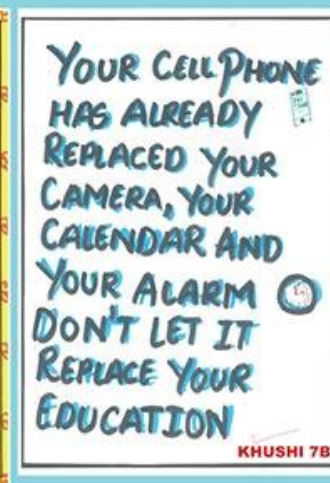 YOUR CELL PHONE
HAS ALREADY
REPLACED YOUR
CAMERA, YOUR
CALENDAR AND
YOUR ALARM
DON'T LET IT
REPLACE YOUR
EDUCATION
KHUSHI 7B